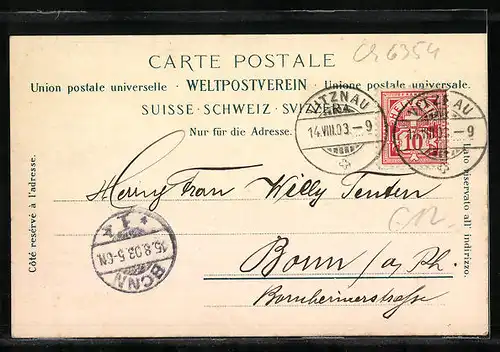 Ch 6354
CARTE POSTALE
Union postale universelle · WELTPOSTVEREIN · Unione postale universale.
SUISSE · SCHWEIZ · SVIZZERA
Nur für die Adresse.
VITZNAU
14.VIII.03.–9
VITZNAU
14.VIII.03.–9
HELVETIA
10
Côté réservé à l'adresse.
Lato riservato all' indirizzo.
Willy Tenten
G12.
Bonn a/Rh.
Bornheimerstrasse
BONN
15.8.03.5-6N
* 1 *